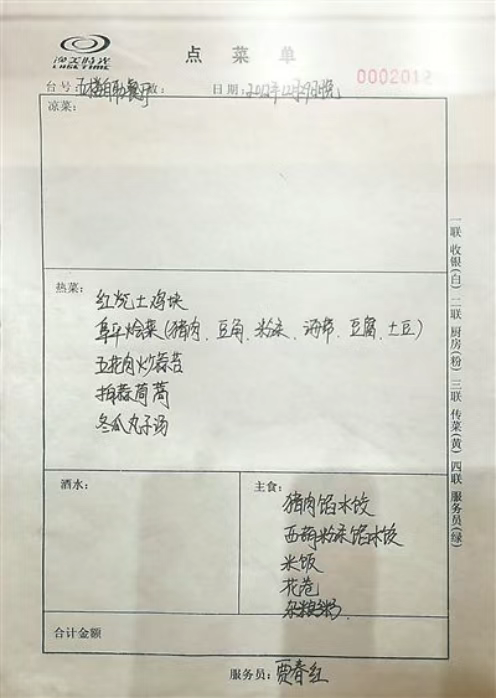 渔美时光
LOSE TIME
点菜单
0002012
台号:五楼自助餐厅 数: 日期:2012年12月29日晚
凉菜:
热菜:
红烧土鸡块
阜平烩菜(猪肉、豆角、粉条、海带、豆腐、土豆)
五花肉炒蒜苔
拍蒜茼蒿
冬瓜丸子汤
酒水:
主食:
猪肉馅水饺
西葫粉条馅水饺
米饭
花卷
杂粮粥
合计金额
服务员:贾春红
一联 收银(白) 二联 厨房(粉) 三联 传菜(黄) 四联 服务员(绿)